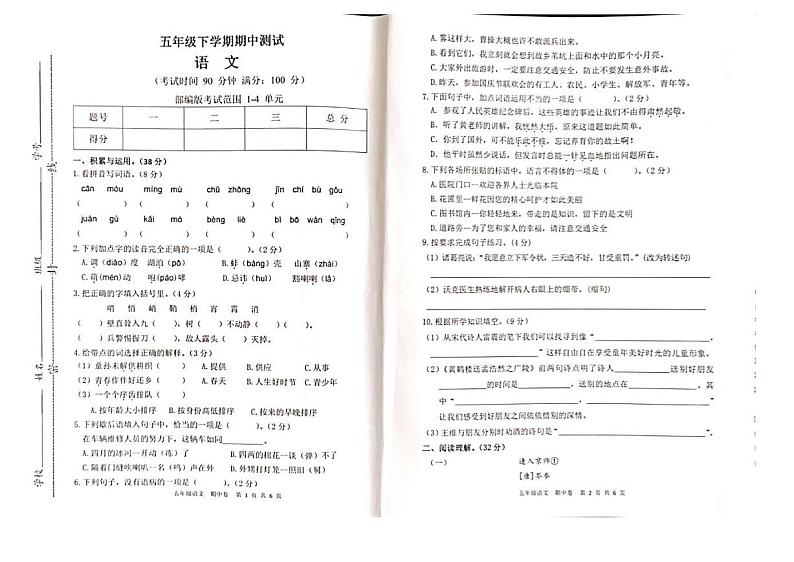 五年级下学期期中测试
语 文
(考试时间 90 分钟 满分:100 分)
部编版考试范围 1-4 单元
题号 一 二 三 总 分
得分
一、积累与运用。(38分)
1.看拼音写词语。(8分)
cān móu míng mù chǔ zhōng jīn chí bù gǒu
( ) ( ) ( ) ( )
juàn gù kǎi mó bèng liè bì bō wān qǐng
( ) ( ) ( ) ( )
2.下列加点字的读音完全正确的一项是( )。(2分)
A.调(diào)度 湖泊(pō) B.蚌(bàng)壳 山寨(zhài)
C.萌(mén)动 咆(páo)哮 D.忌讳(huì) 豁喇喇(lǎ)
3.把正确的字填入括号里。(4分)
哨 悄 峭 鞘 梢 宵 霄 消
( )壁直耸入九( ), 树( )不动静( )( )。
( )兵警惕握刀( ), 敌人露头( )灭掉。
4.给带点的词选择正确的解释。(3分)
(1)童孙未解供耕织( ) A.提供 B.供应 C.从事
(2)青春作伴好还乡( ) A.春天 B.人生好时节 C.青少年
(3)一个个序齿排队( )
A.按年龄大小排序 B.按身份高低排序 C.按来的早晚排序
5.下列歇后语填入句子中,恰当的一项是( )。(2分)
在车辆维修人员的努力下,这辆车如同________。
A.四月的冰河一开动(冻)了 B.四两的棉花一谈(弹)不上
C.隔着门缝吹喇叭一名(鸣)声在外 D.外甥打灯笼一照旧(舅)
6.下列句子,没有语病的一项是( )。(2分)
五年级语文 期中卷 第 1 页 共 6 页
学校
姓名
班级
学号
密
封
线
A.雾这样大,曹操大概也许不敢派兵出来。
B.看到它们,我立刻就会想到故乡苇坑上面和水中的那个小月亮。
C.大家外出旅游的时候,一定要注意交通安全,防止不要发生危险。
D.昨天,参加国庆节联欢会的有工人、农民、战士、解放军、青年等。
7.下面句子中,加点词语运用不当的一项是( )。(2分)
A.参观了人民英雄纪念碑后,这些英雄的事迹让我们不由得肃然起敬。
B.听了黄老师的讲解,我恍然大悟,原来这道题如此简单。
C.你到了国外,可不能乐此不疲,忘记养育你的故土啊!
D.他平时虽然少说话,但发言时总能一针见血地指出问题所在。
8.下列各场所张贴的标语中,语言不得体的一项是( )。(2分)
A.医院门口一欢迎各界人士光临本院
B.花圃里一鲜花因您的精心呵护才如此美丽
C.图书馆内一你轻轻地来,带走的是知识,留下的是文明
D.道路旁一为了您和家人的幸福,请注意交通安全
9.按要求完成句子练习。(4分)
(1)诸葛亮说:“我愿意立下军令状,三天造不好,甘受重罚。”(改为转述句)
(2)沃克医生熟练地解开病人右眼上的绷带。(缩句)
10.根据所学知识填空。(9分)
(1)从宋代诗人雷震的笔下我们可以找寻到像“________________
________________”这样自由自在享受童年美好时光的儿童形象。
(2)《黄鹤楼送孟浩然之广陵》前两句诗点明了诗人________送别好朋友
________的时间是________,送别的地点在________,其
中“________________________________”
让我们感受到好朋友之间依依惜别的深情。
(3)王维与朋友分别时劝酒的诗句是“________________”。
二、阅读理解。(32分)
(一) 逢入京师①
[唐]岑参
五年级语文 期中卷 第 2 页 共 6 页